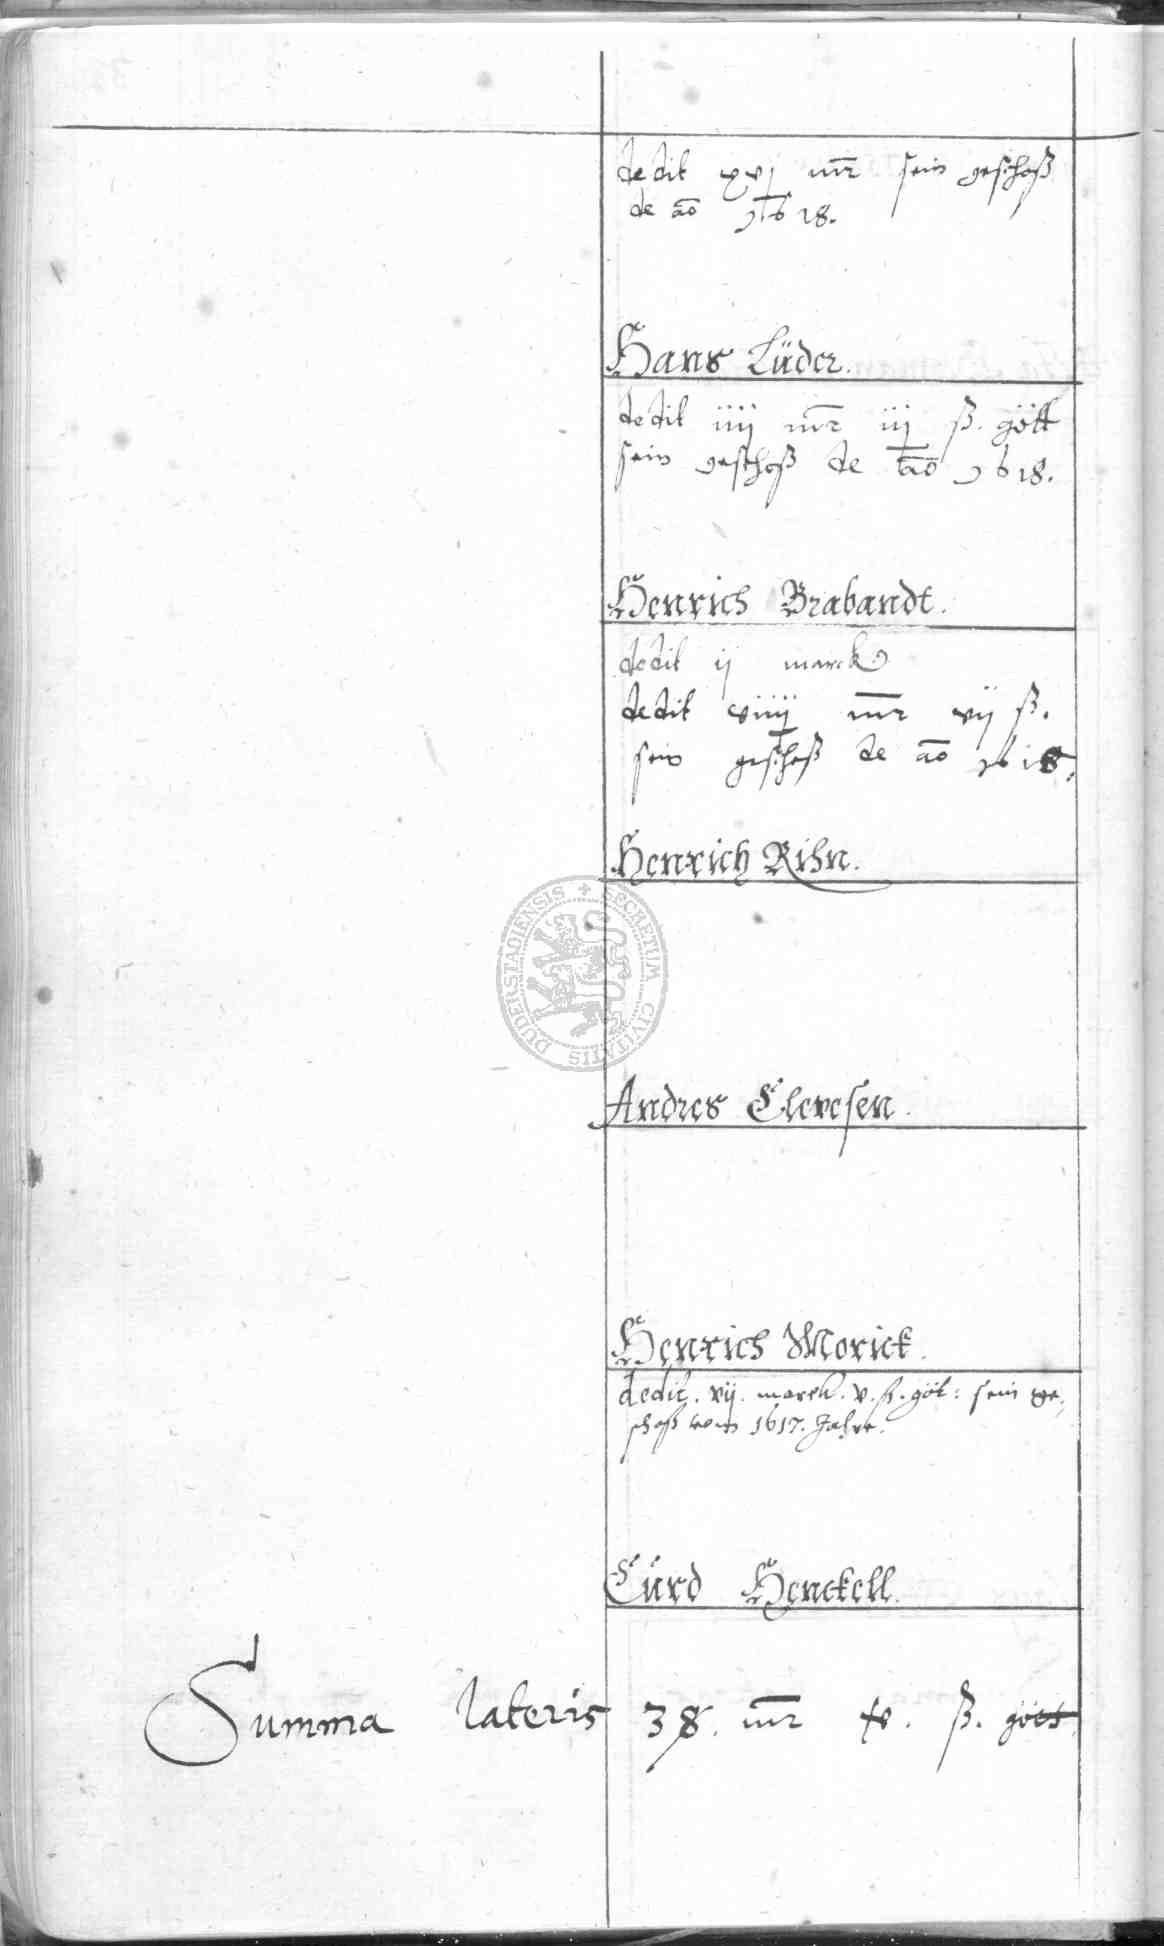 dedit xvj mr sein geschoß
de ao 1618.
Hans Lüder.
dedit iiij mr iij ß. gött
sein geschoß de ao 1618.
Henrich Brabandt.
dedit ij marck
dedit viiij mr vij ß.
sein geschoß de ao 1618.
Henrich Rihn.
DUDERSTADIENSIS + SECRETUM CIVITATIS
Andres Clevesen.
Henrich Morick.
dedit. vij. marck. v. ß. göt: sein ge-
schoß vom 1617. Jahre.
Cürd Henckell.
Summa lateris 38. mr ß. gött